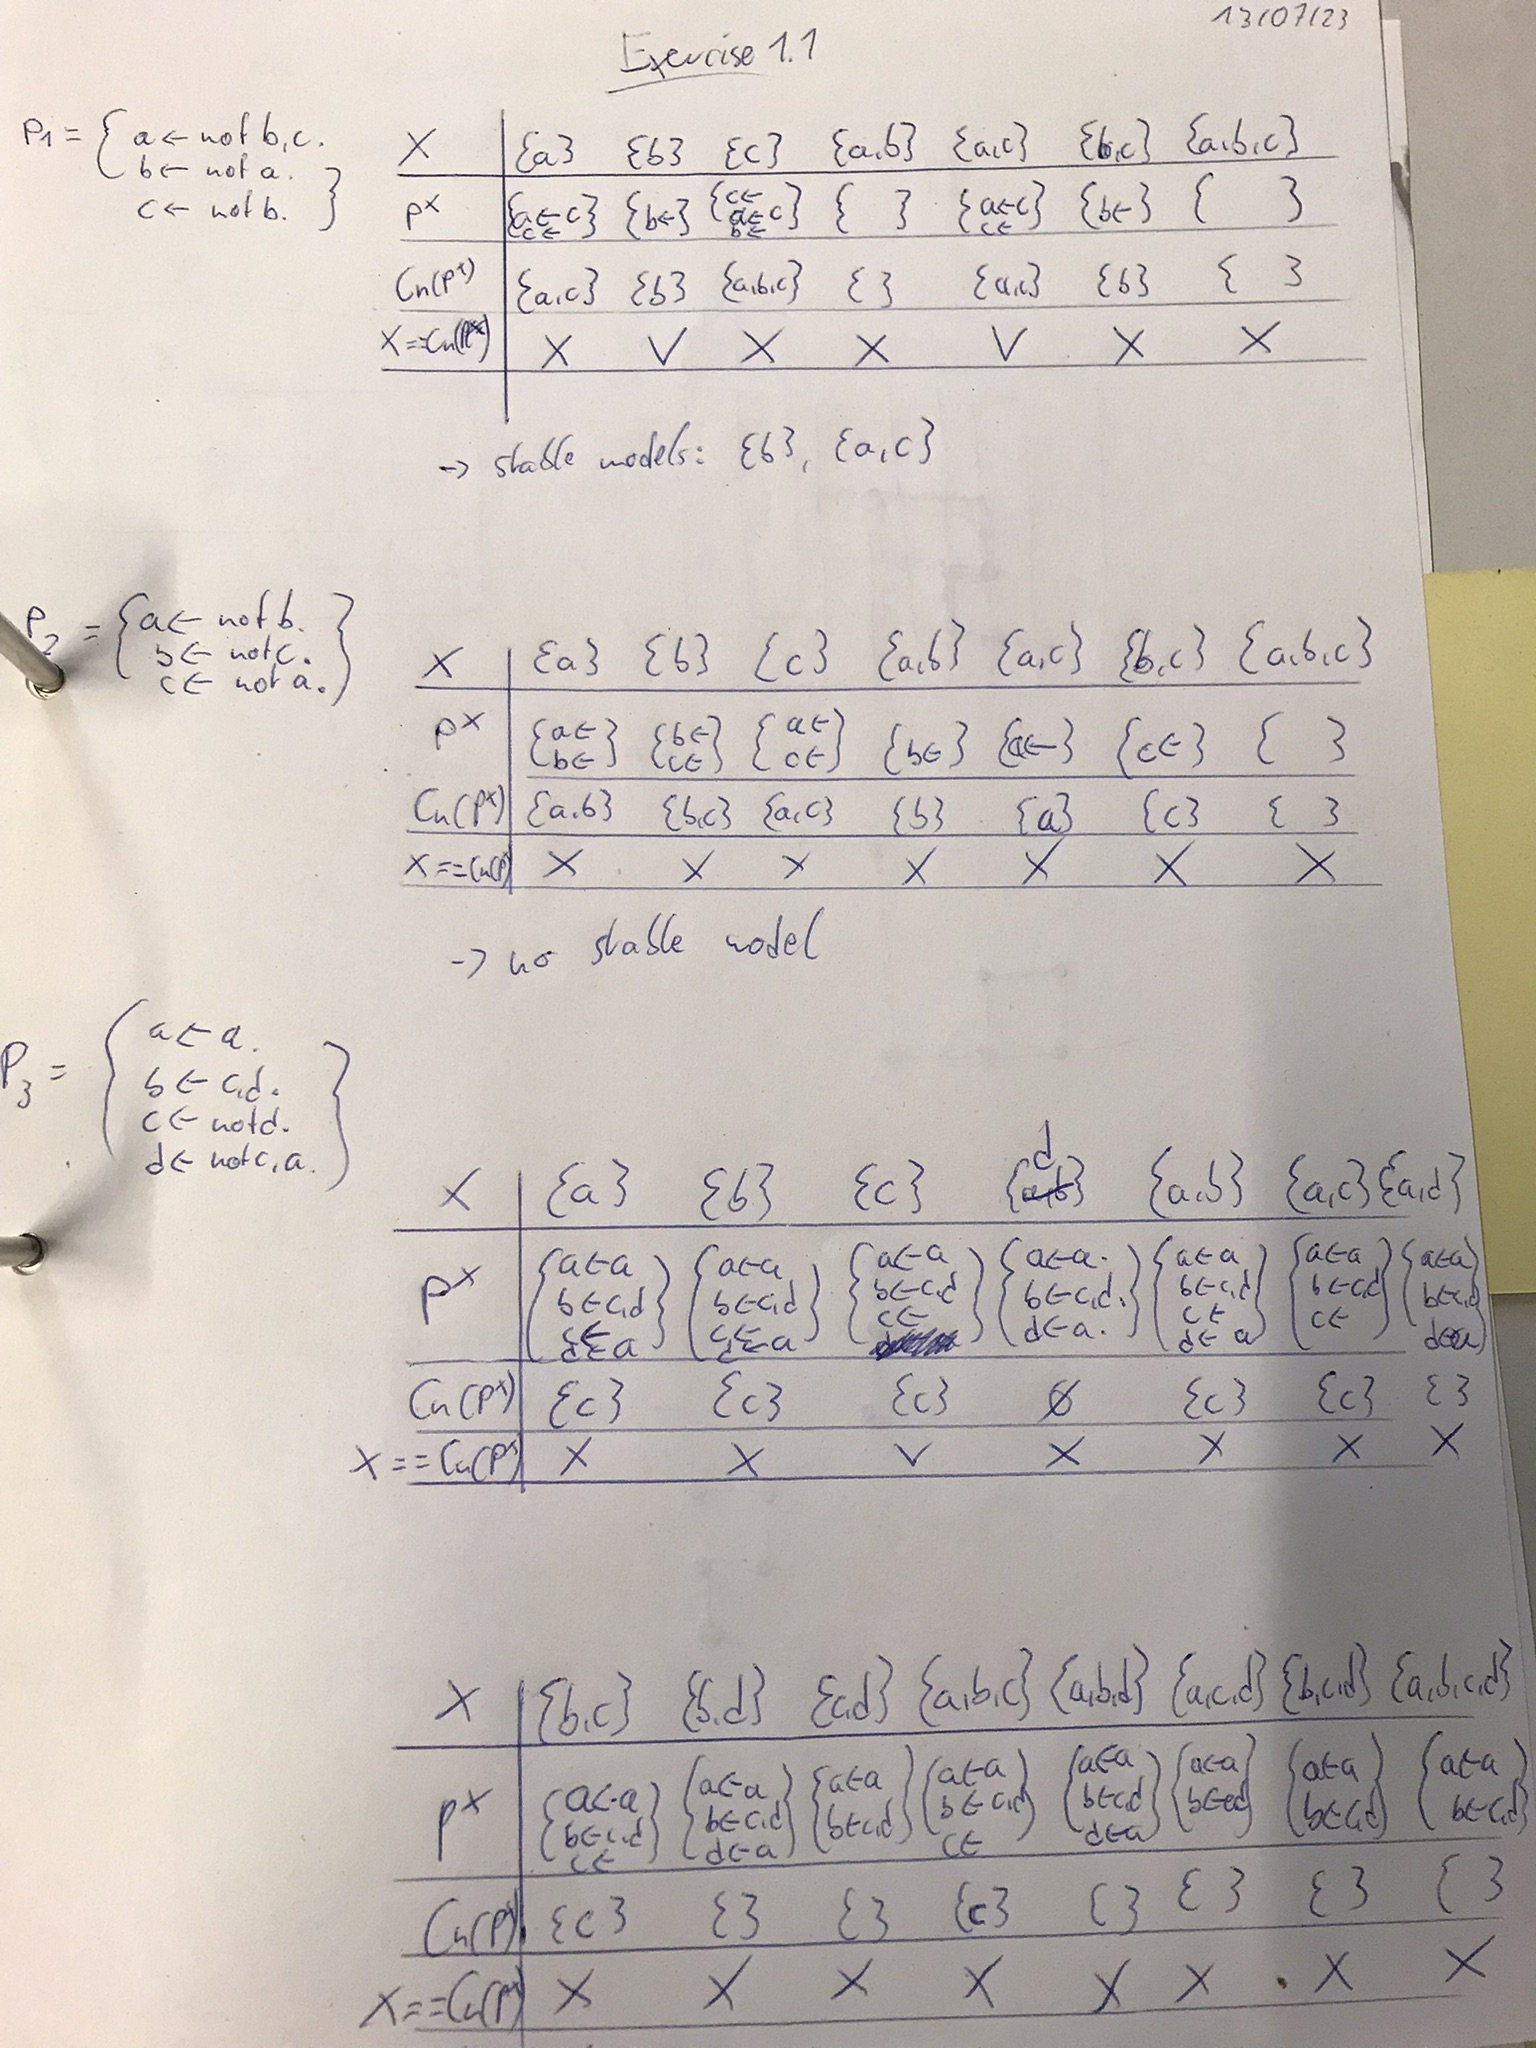 13/07/23
Exercise 1.1
P1 = { a ← not b, c.
b ← not a.
c ← not b. }
X {a} {b} {c} {a,b} {a,c} {b,c} {a,b,c}
P^X {a←c c←} {b←} {c← a←c b←} { } {a←c c←} {b←} { }
Cn(P^X) {a,c} {b} {a,b,c} { } {a,c} {b} { }
X==Cn(P^X) X V X X V X X
→ stable models: {b}, {a,c}
P2 = { a ← not b.
b ← not c.
c ← not a. }
X {a} {b} {c} {a,b} {a,c} {b,c} {a,b,c}
P^X {a← b←} {b← c←} {a← c←} {b←} {a←} {c←} { }
Cn(P^X) {a,b} {b,c} {a,c} {b} {a} {c} { }
X==Cn(P) X X X X X X X
→ no stable model
P3 = { a ← a.
b ← c,d.
c ← not d.
d ← not c, a. }
X {a} {b} {c} {d} {a,b} {a,c} {a,d}
P^X {a←a b←c,d c← d←a} {a←a b←c,d c← d←a} {a←a b←c,d c←} {a←a. b←c,d. d←a.} {a←a b←c,d c← d←a} {a←a b←c,d c←} {a←a b←c,d d←a}
Cn(P^X) {c} {c} {c} ∅ {c} {c} { }
X==Cn(P^X) X X V X X X X
X {b,c} {b,d} {c,d} {a,b,c} {a,b,d} {a,c,d} {b,c,d} {a,b,c,d}
P^X {a←a b←c,d c←} {a←a b←c,d d←a} {a←a b←c,d} {a←a b←c,d c←} {a←a b←c,d d←a} {a←a b←cd} {a←a b←c,d} {a←a b←c,d}
Cn(P^X) {c} { } { } {c} { } { } { } { }
X==Cn(P^X) X X X X X X X X